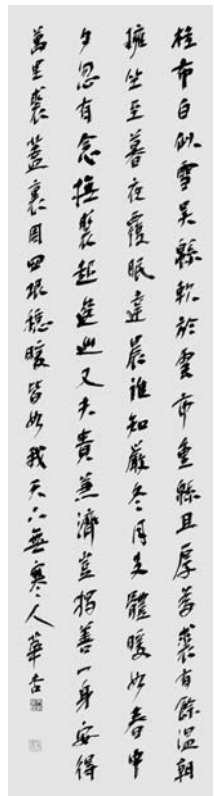 桂布白似雪吳緜軟於雲布重緜且厚為裘有餘溫朝
擁坐至暮夜覆眠達晨誰知嚴冬月支體暖如春中
夕忽有念撫裘起逡巡丈夫貴兼濟豈獨善一身安得
萬里裘蓋裹周四垠穩暖皆如我天下無寒人華